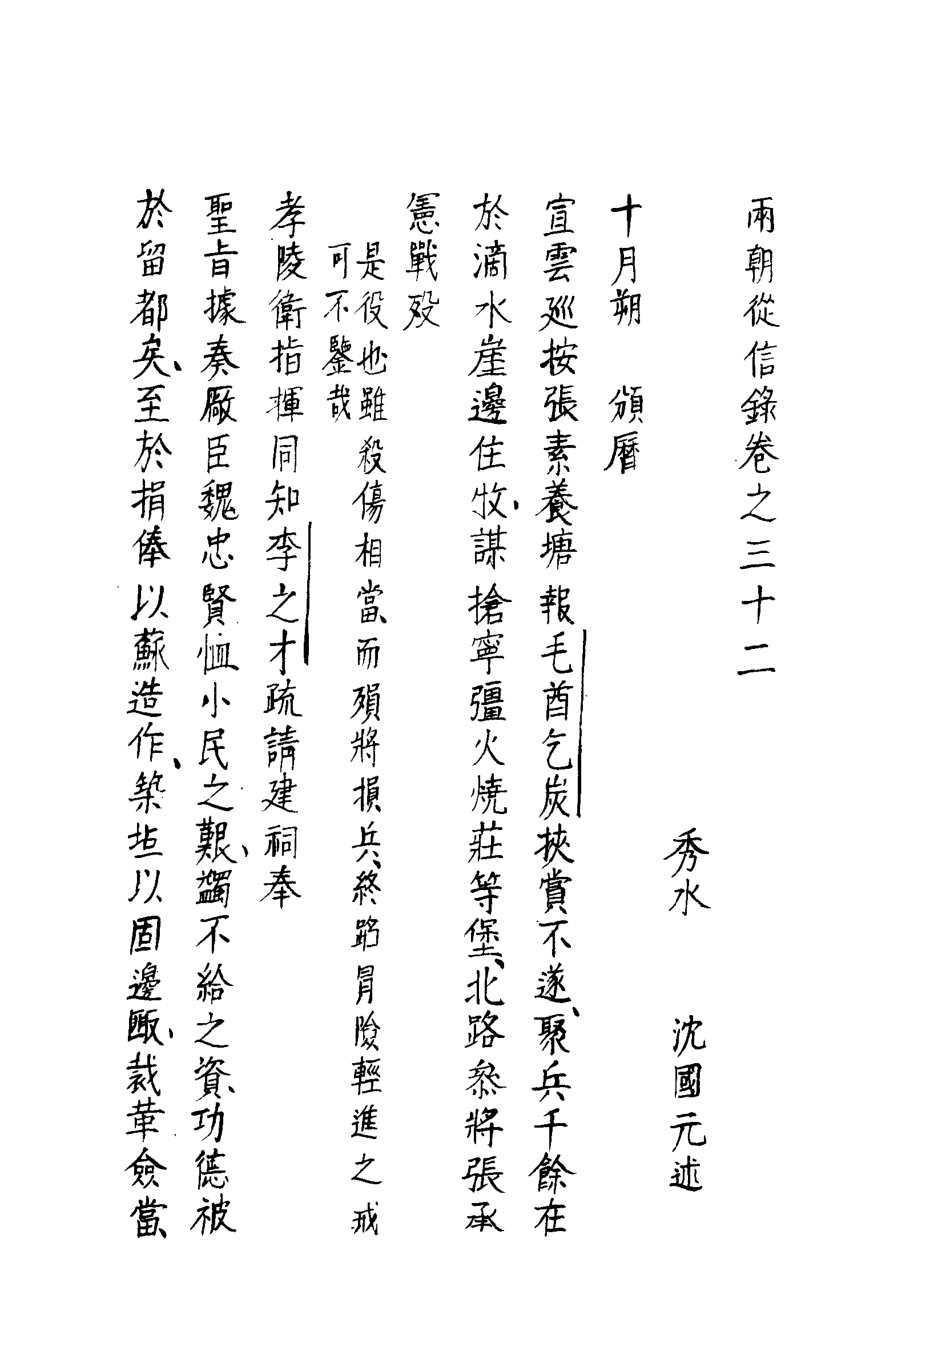 兩朝從信錄卷之三十二
秀水 沈國元述
十月朔 頒曆
宣雲廵按張素養塘報毛酋乞炭挾賞不遂、聚兵千餘在
於滴水崖邊住牧、謀搶寧疆火燒莊等堡、北路叅將張承
憲戰殁
是役也雖殺傷相當、而殞將損兵、終蹈冐險輕進之戒
可不鑒哉
孝陵衛指揮同知李之才疏請建祠奉
聖旨據奏厰臣魏忠賢恤小民之艱、蠲不給之資、功德被
於留都矣、至於捐俸以蘇造作、築垣以固邊陲、裁革僉當、